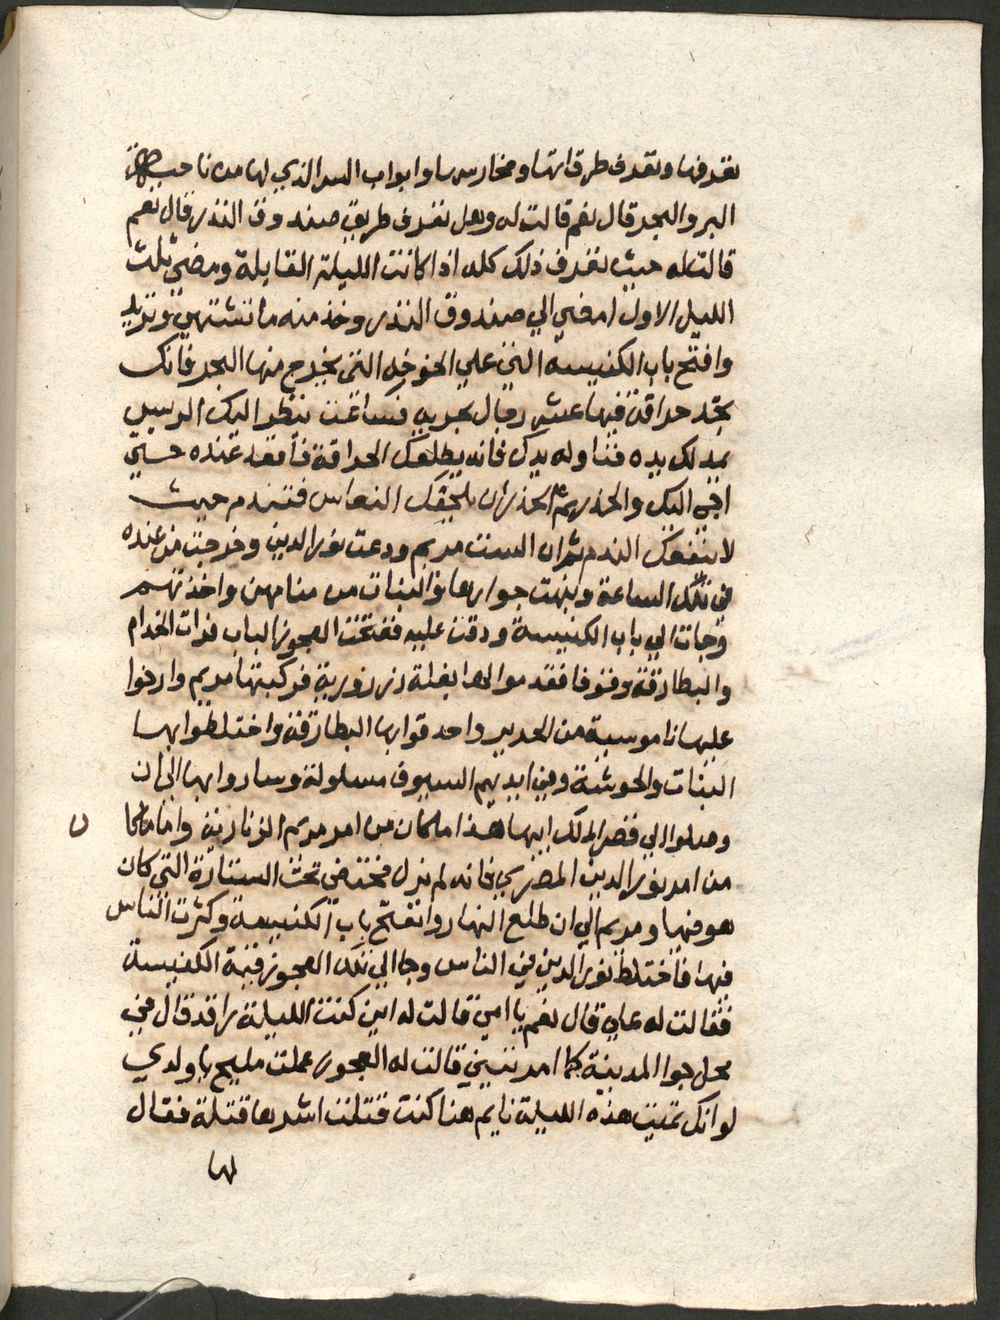 تعرفها وتعرف طرقاتها ومخارسها وابواب السر الذي لها من ناحية
البر والبحر قال نعم قالت له وهل تعرف طريق صندوق النذر قال نعم
قالت له حيث تعرف ذلك كله اذا كانت الليلة القابلة ومضي ثلث
الليل الاول امضي الي صندوق النذر وخذ منه ما تشتهي وتريد
وافتح باب الكنيسه التي علي الخوخه التي يخرج منها البحر فانك
تجد حراقة فيها عشر رجال بحريه فساعت ينظر اليك الريس
يمد لك يده فناوله يدك فانه يطلعك الحراقة فاقعد عنده حتي
اجي اليك والحذر ثم الحذر ان يلحقك النعاس فتندم حيث
لا ينفعك الندم ثم ان الست مريم ودعت نور الدين وخرجت من عنده
في تلك الساعة ونبهت جوارها والبنات من منامهن واخذتهم
وجات الي باب الكنيسة ودقت عليه ففتحت العجوز الباب فرات الخدام
والبطارقة وقوفا فقدموا لها بغلة زرزورية فركبتها مريم وارخوا
عليها ناموسية من الحرير واحدقوا بها البطارقة واختلطوا بها
البنات والحوشية وفي ايديهم السيوف مسلولة وساروا بها الي ان
وصلوا الي قصر الملك ابيها هذا ما كان من امر مريم الزنارية واما ما كان
من امر نور الدين المصري فانه لم يزل مختفي تحت الستارة التي كان
هو فيها ومريم الي ان طلع النهار وانفتح باب الكنيسة وكثرت الناس
فيها فاختلط نور الدين في الناس وجا الي تلك العجوز قيمة الكنيسة
فقالت له علي قال نعم يا امي قالت له اين كنت الليلة راقد قال في
محل جوا المدينة كما امرتيني قالت له العجوز عملت مليح يا ولدي
لو انك تميت هذه الليلة نايم هنا كنت قتلت اشرها قتلة فقال
لها